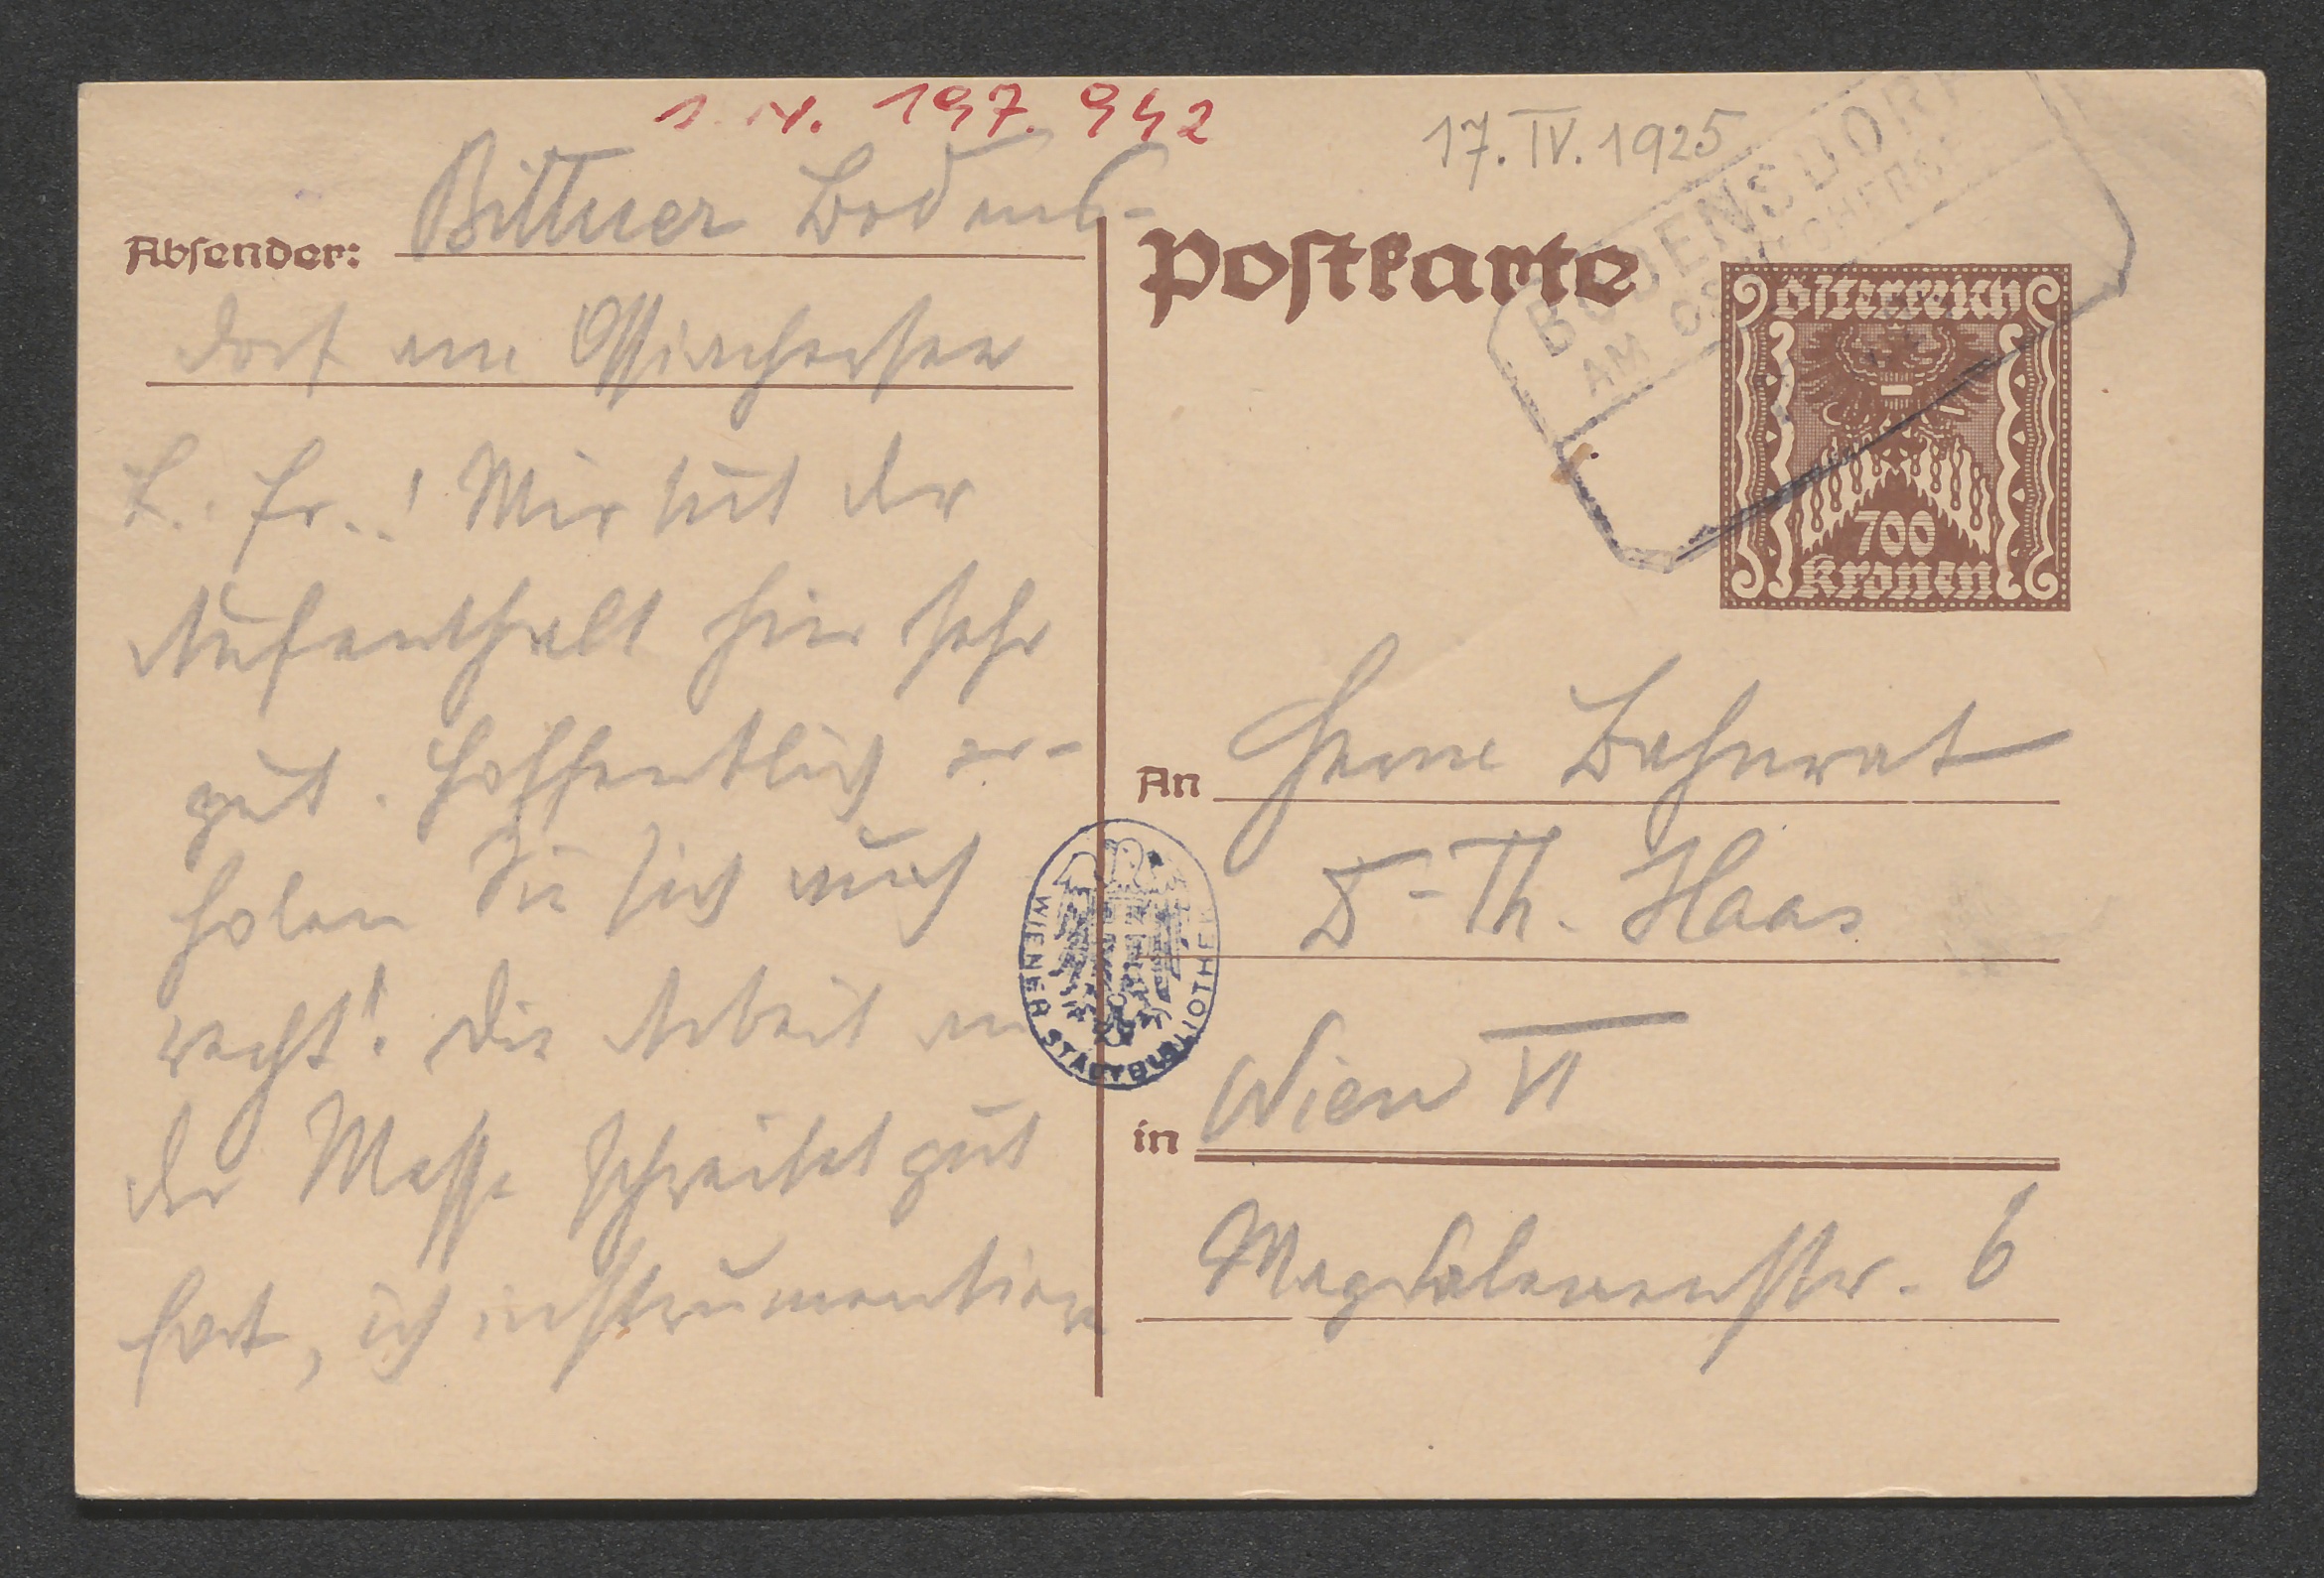 I. N. 197.942
Absender: Bittner Bodens-
dorf am Ossiachersee
L. Fr.! Mir tut der
Aufenthalt hier sehr
gut. Hoffentlich er-
holen Sie sich auch
recht! Die Arbeit an
der Messe schreitet gut
fort, ich instrumentiere
17.IV.1925
BODENSDORF
AM OSSIACHERSEE
Postkarte
Österreich
700
Kronen
An Herrn Bahnrat
Dr Th. Haas
WIENER STADTBIBLIOTHEK
in Wien VI
Magdalenenstr. 6